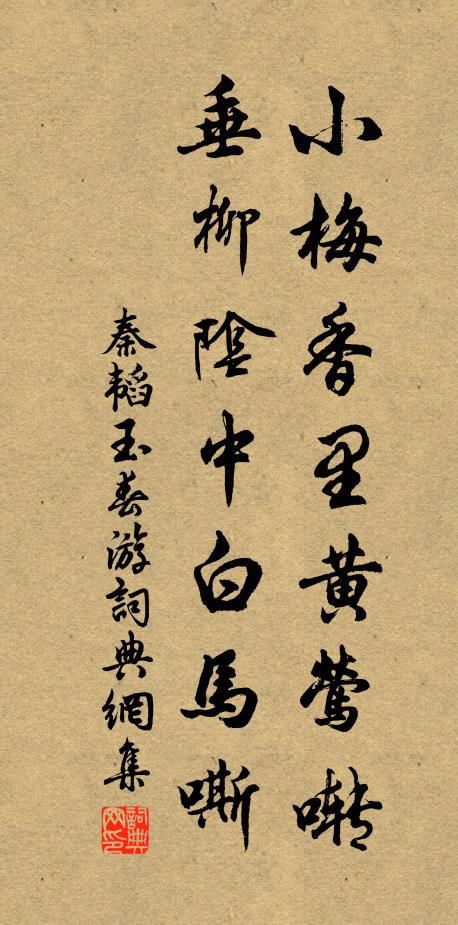 小梅香里黄鶯囀
垂柳陰中白馬嘶
秦韜玉春游詞典網集
詞典网印